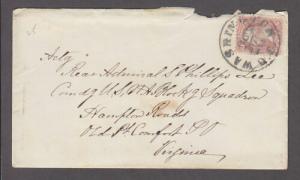 WASHINGTON
Actg
Rear Admiral S Phillips Lee
Comdg U.S. N. A. Blockg Squadron
Hampton Roads
Old Pt Comfort P O
Virginia